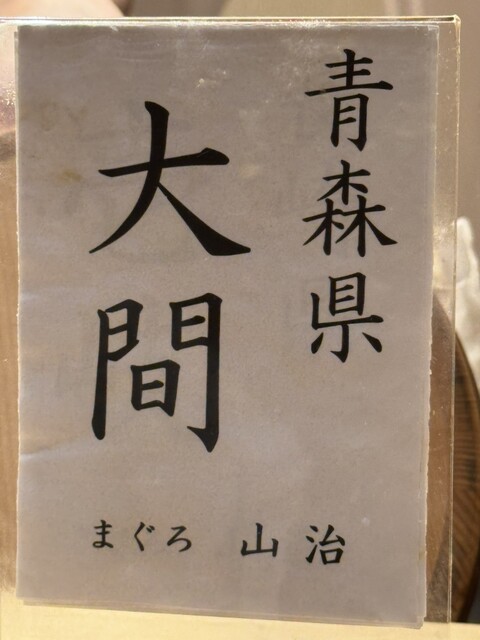 青森県
大間
まぐろ 山治